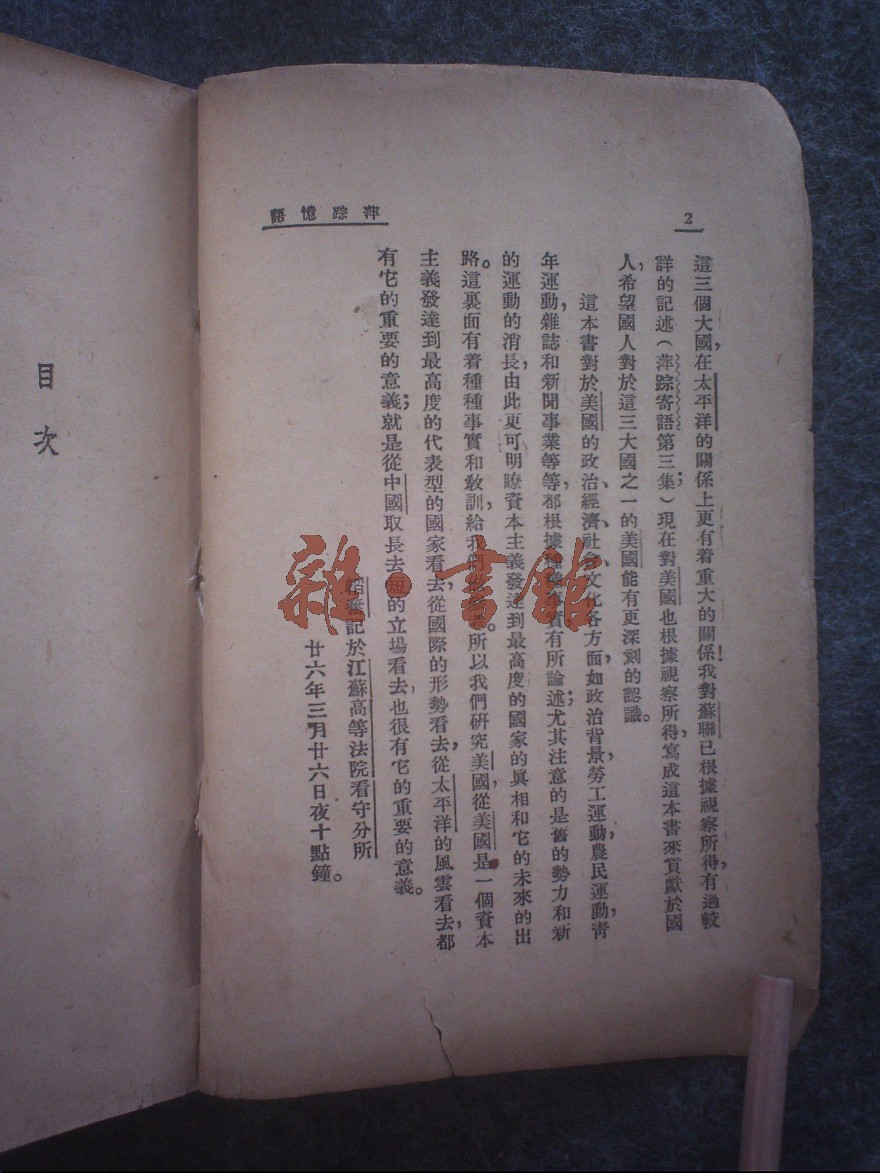 2
萍踪憶語
這三個大國,在太平洋的關係上更有着重大的關係!我對蘇聯已根據視察所得,有過較
詳的記述(萍踪寄語第三集);現在對美國也根據視察所得,寫成這本書來貢獻於國
人,希望國人對於這三大國之一的美國能有更深刻的認識。
這本書對於美國的政治、經濟、社會、文化各方面,如政治背景,勞工運動,農民運動,青
年運動,雜誌和新聞事業等等,都根據種種事實有所論述;尤其注意的是舊的勢力和新
的運動的消長,由此更可明瞭資本主義發達到最高度的國家的眞相和它的未來的出
路。這裏面有着種種事實和敎訓,給我們做參考。所以我們研究美國,從美國是一個資本
主義發達到最高度的代表型的國家看去,從國際的形勢看去,從太平洋的風雲看去,都
有它的重要的意義;就是從中國取長去短的立場看去,也很有它的重要的意義。
韜奮記於江蘇高等法院看守分所
廿六年三月廿六日夜十點鐘。
目次
雜·書館